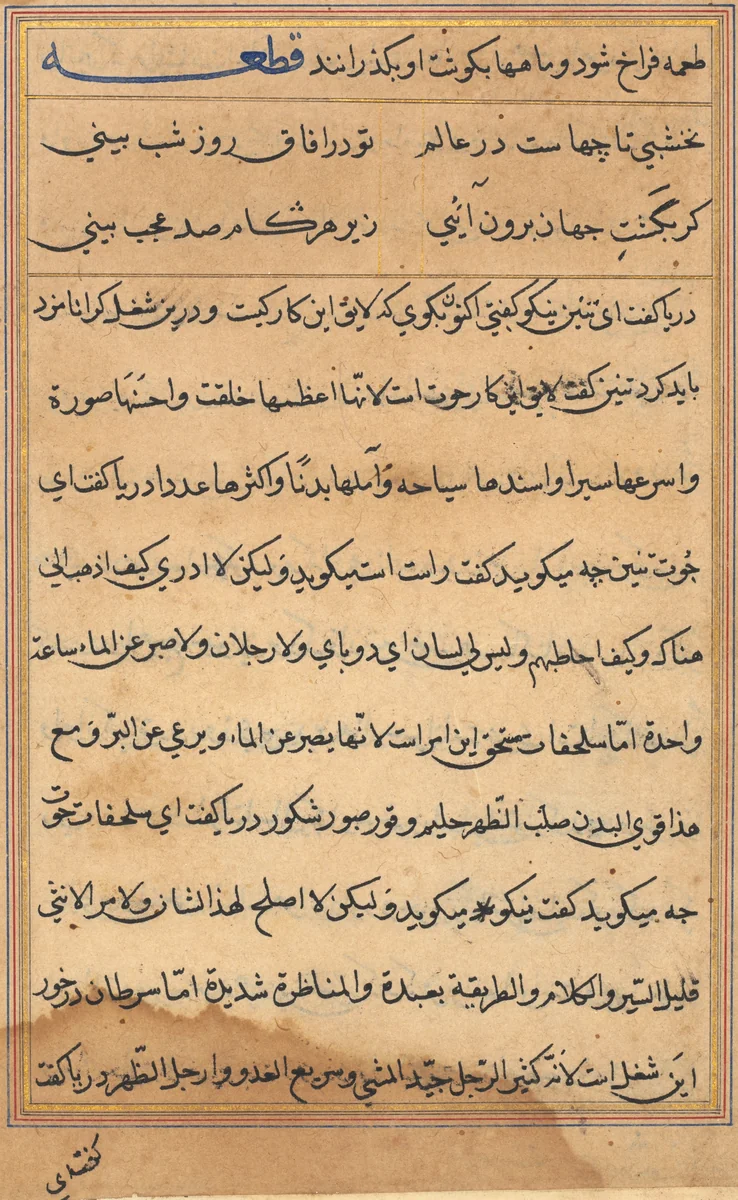 طعمه فراخ شود و ماهیها بکوشت او بکذرانند قطعه
نخشبي تا چهاست در عالم تو در افاق روز شب بيني
کر بگشتِ جهان برون آئي زير هر گام صد عجب بيني
دريا کفت اي تنين نيکو کفتي اکنون بکوي که لايق اين کار کيست و درين شغل کرا نامزد
بايد کرد تنين کفت لايق اين کار حوت است لانّها اعظمها خلقت و احسَنهَا صورة
و اسرعها سيرا و اسندها سياحه وَآملها بدنًا و اکثرها عددا دريا کفت اي
حُوت تنين چه ميکويد کفت راست است ميکويد وَليکن لا ادري کيف اذهب الي
هناک و کيف احاطبهم و ليس لي لسان اي دو باي ولا رجلان ولا صبر عن الماء ساعة
واحدة امّا سلحفات مستحق اين امر است لانّها يصبر عن الماء و يرعي عن البرّ وَ مع
هذا قوي البدن صلب الظّهر حليم و قور صبور شکور دريا کفت اي سلحفات حوت
جه ميکويد کفت نيکو ميکويد وَليکن لا اصلح لهذا الشان ولا مر الانثي
قليل السّير و الکلام و الطريقة بعيدة و المناظرة شديدة امّا سرطان درخور
اين شغل است لانّه کثير الرّجل جيّد المشي و سريع العدو و ارجل الظّهر دريا کفت
کفت اي